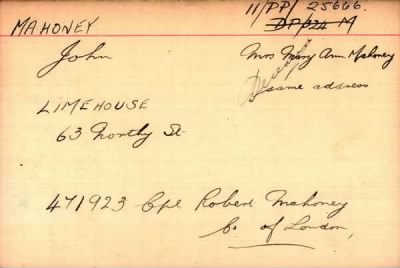 11/PP/25666.
MAHONEY
DP/324 M
John
Mrs Mary Ann Mahoney
Deceased
same address
LIMEHOUSE
63 Northy St.
471923 Cpl Robert Mahoney
C. of London,